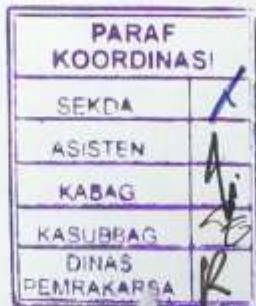 PARAF
KOORDINASI
SEKDA
ASISTEN
KABAG
KASUBBAG
DINAS
PEMRAKARSA